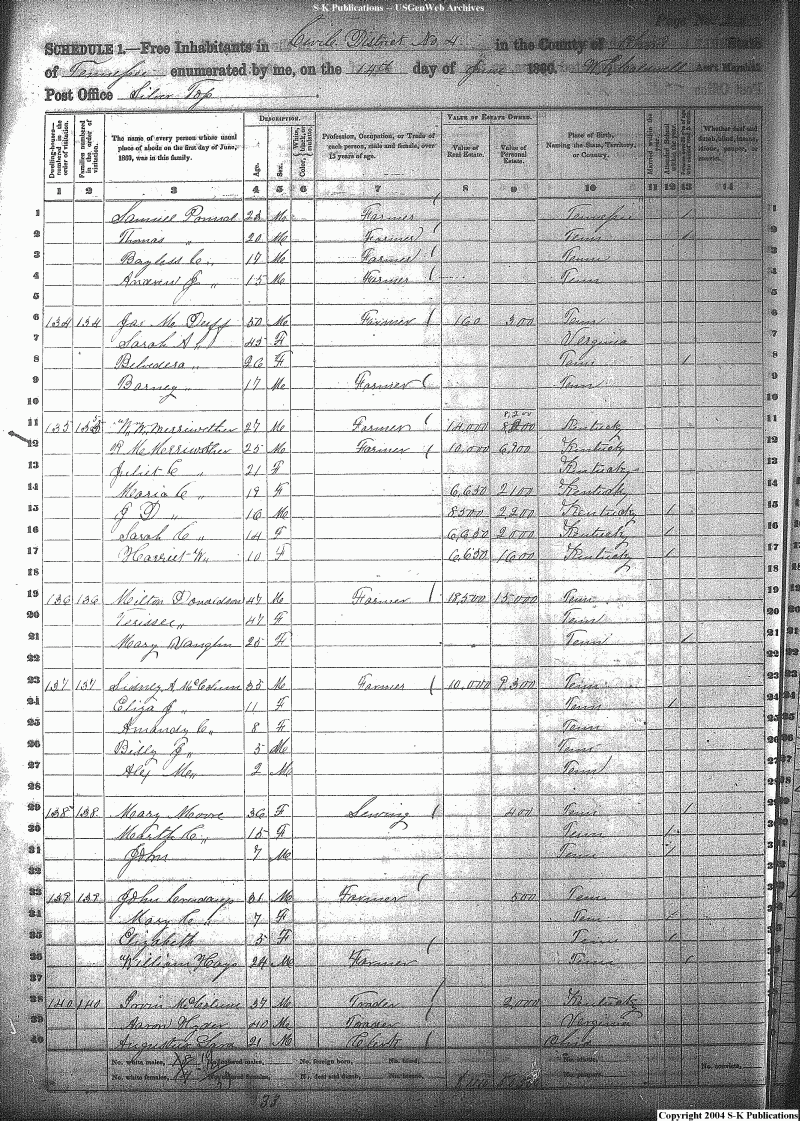 S-K Publications – USGenWeb Archives
SCHEDULE 1.—Free Inhabitants in Civile District No 4 in the County of State
of Tennessee enumerated by me, on the 14th day of June 1860. Ass't Marshal
Post Office Silver Top
DESCRIPTION. VALUE OF ESTATE OWNED.
Dwelling-houses—numbered in the order of visitation. Families numbered in the order of visitation. The name of every person whose usual place of abode on the first day of June, 1860, was in this family. Age. Sex. Color, White, black, or mulatto. Profession, Occupation, or Trade of each person, male and female, over 15 years of age. Value of Real Estate. Value of Personal Estate. Place of Birth, Naming the State, Territory, or Country. Married within the year. Whether deaf and dumb, blind, insane, idiotic, pauper, or convict.
1 2 3 4 5 6 7 8 9 10 11 12 13 14
1 Samuel 23 M Farmer Tennessee / 1
2 Thomas " 20 M Farmer Tenn / 2
3 Bayless C. " 17 M Farmer Tenn 3
4 Andrew J " 15 M Farmer Tenn 4
5 5
6 134 134 Jas M Duff 50 M Farmer 160 300 Tenn 6
7 Sarah A " 45 F Virginia 7
8 Belvedera " 26 F Tenn / 8
9 Barney " 17 M Farmer Tenn 9
10 10
11 135 135 W. W. Merriwether 27 M Farmer 14,000 8,200 Kentucky 11
12 R M Merriwether 25 M Farmer 10,000 6,900 Kentucky 12
13 Juliet C " 21 F Kentucky 13
14 Maria C " 19 F 6,650 2100 Kentucky 14
15 J D " 16 M 8500 2,200 Kentucky / 15
16 Sarah C " 14 F 6,650 2000 Kentucky / 16
17 Harriet W " 10 F 6,650 1600 Kentucky / 17
18 18
19 136 136 Milton Donaldson 47 M Farmer 18,500 15,000 Tenn 19
20 " 47 F Tenn 20
21 Mary Vaughn 25 F Tenn / 21
22 22
23 137 137 Sidney A McColum 35 M Farmer 10,000 9,300 Tenn 23
24 Eliza J " 11 F Tenn / 24
25 Amandy C " 8 F Tenn 25
26 Billy J " 5 M Tenn 26
27 Alex M " 2 M Tenn 27
28 28
29 138 138 Mary Moore 36 F Sewing 400 Tenn / 29
30 Martha C " 15 F Tenn / 30
31 John 7 M Tenn / 31
32 32
33 139 139 John 31 M Farmer 500 Tenn 33
34 Mary C " 7 F Tenn / 34
35 Elizabeth 5 F Tenn / 35
36 William Hays 24 M Farmer Tenn / 36
37 37
38 140 140 Irvin McColum 37 M Trader 2,000 Kentucky 38
39 Aaron Hyder 40 M Virginia 39
40 Augustus 21 M Clerk 40
No. white males, 18 No. colored males, No. foreign born, No. blind,
No. white females, No. colored females, No. deaf and dumb, No. insane, No. idiotic, No. convicts,
33
Copyright 2004 S-K Publications